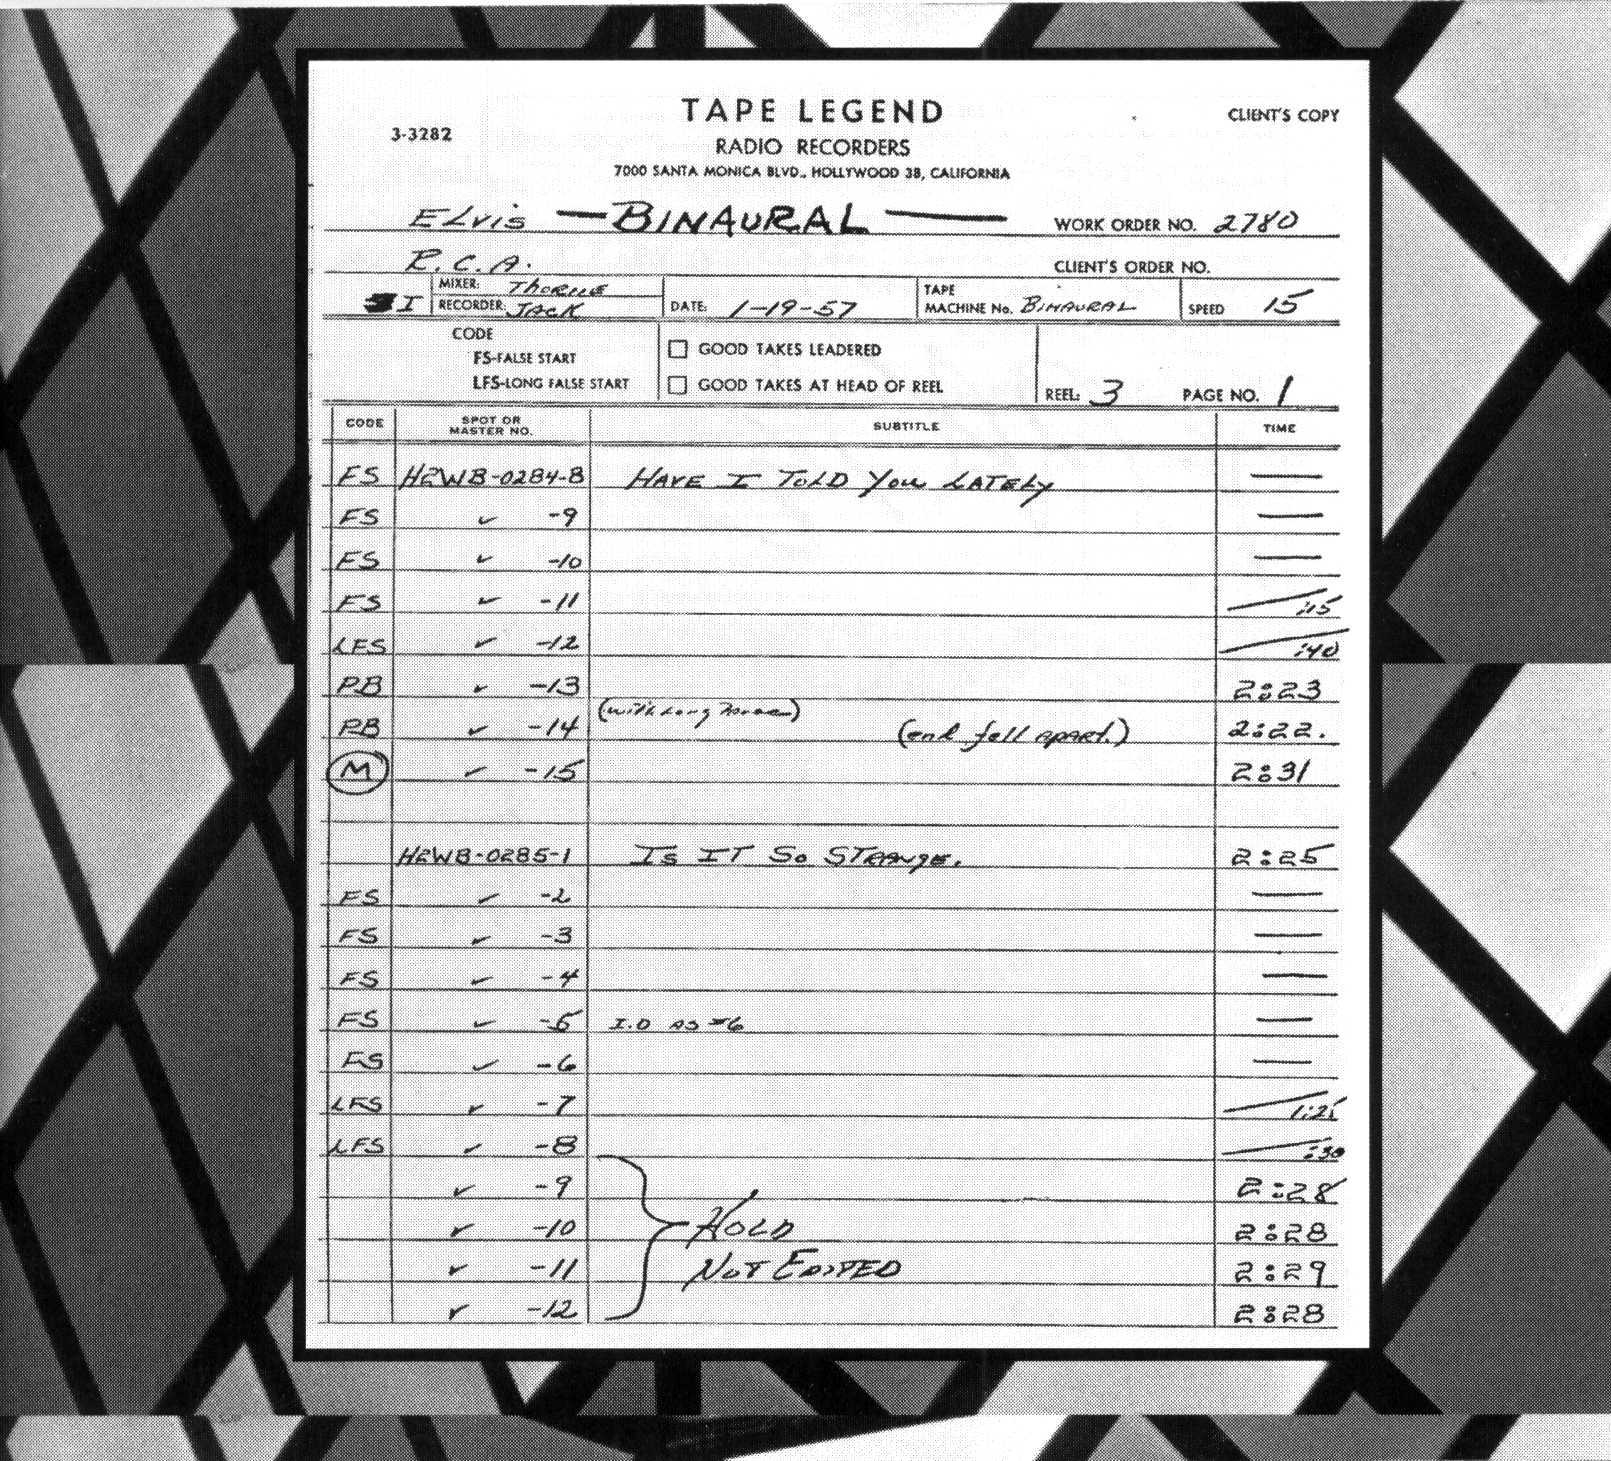 TAPE LEGEND
CLIENT'S COPY
3-3282
RADIO RECORDERS
7000 SANTA MONICA BLVD., HOLLYWOOD 38, CALIFORNIA
ELVIS — BINAURAL —
WORK ORDER NO. 2780
R.C.A.
CLIENT'S ORDER NO.
I MIXER: THORNE
RECORDER: JACK
DATE: 1-19-57
TAPE MACHINE No. BINAURAL
SPEED 15
CODE
FS-FALSE START
LFS-LONG FALSE START
GOOD TAKES LEADERED
GOOD TAKES AT HEAD OF REEL
REEL: 3 PAGE NO. 1
CODE SPOT OR MASTER NO. SUBTITLE TIME
FS H2WB-0284-8 HAVE I TOLD YOU LATELY —
FS ✓ -9 —
FS ✓ -10 —
FS ✓ -11 :15
LFS ✓ -12 :40
PB ✓ -13 2:23
PB ✓ -14 (with long) (end fell apart.) 2:22.
M ✓ -15 2:31
H2WB-0285-1 IS IT SO STRANGE. 2:25
FS ✓ -2 —
FS ✓ -3 —
FS ✓ -4 —
FS ✓ -5 I.D AS #6 —
FS ✓ -6 —
LFS ✓ -7 1:25
LFS ✓ -8 :30
✓ -9 2:28
✓ -10 HOLD 2:28
✓ -11 NOT EDITED 2:29
✓ -12 2:28